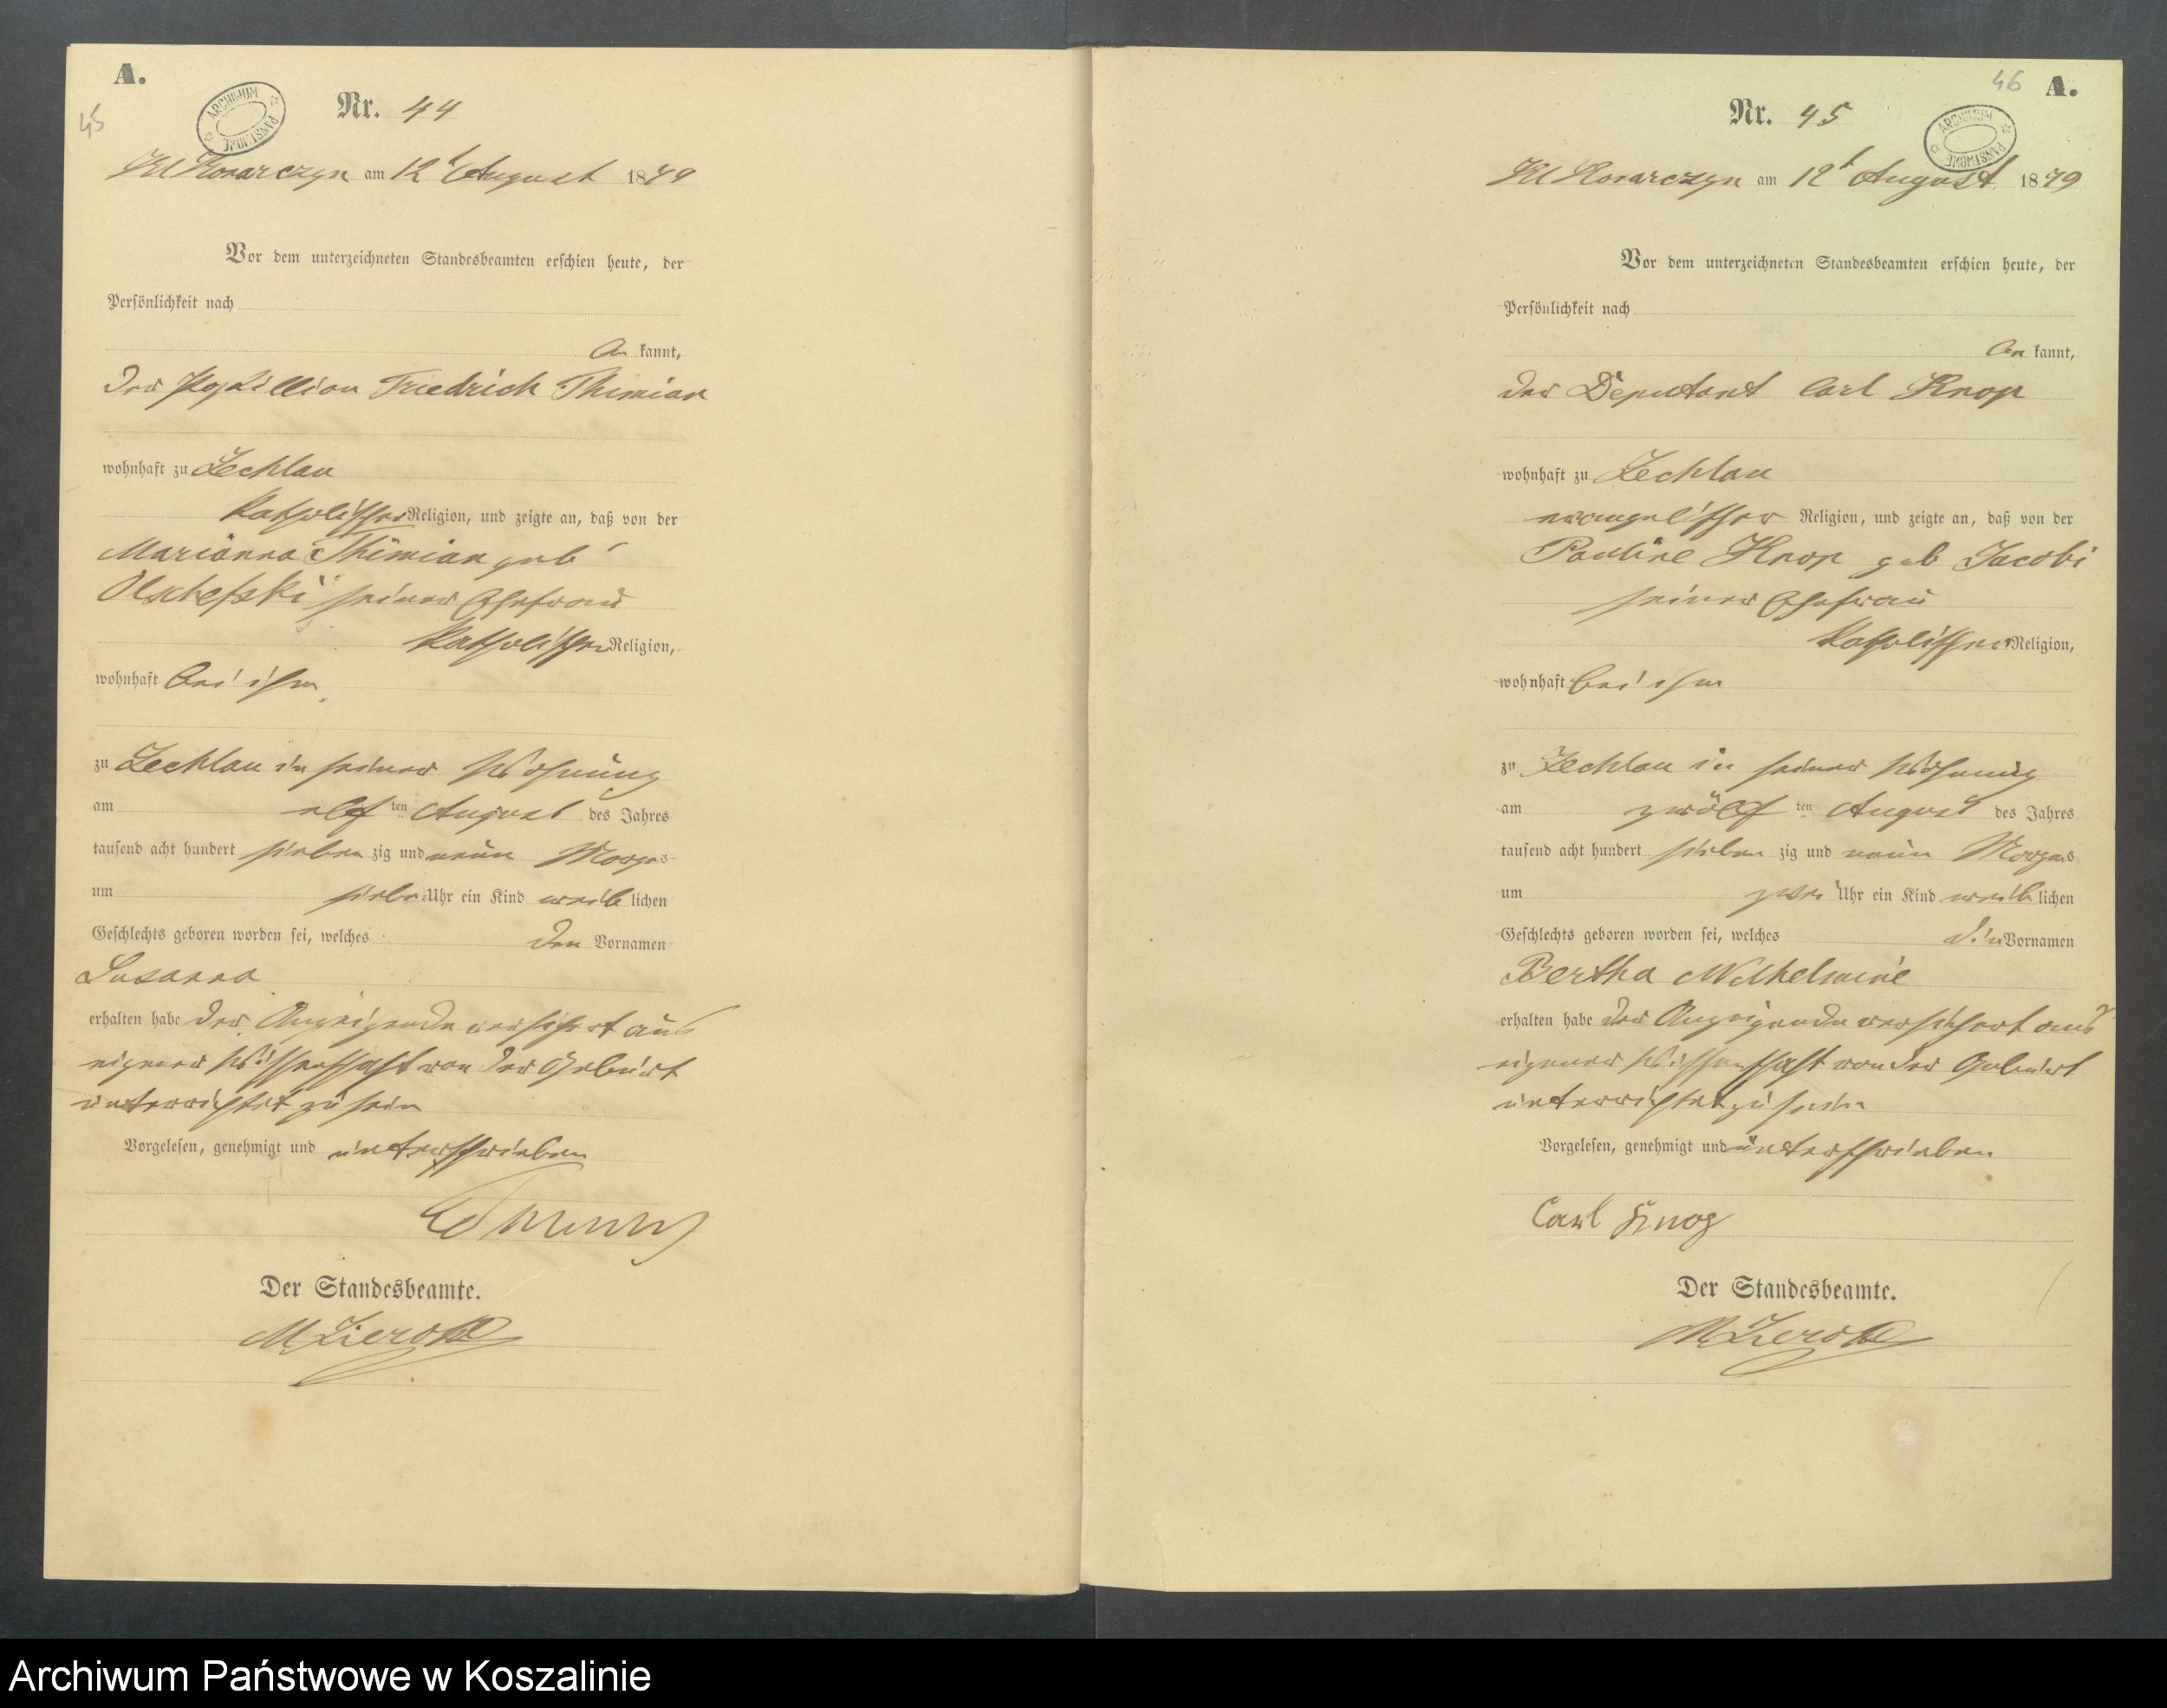 A.
45
ARCHIWUM PAŃSTWOWE
Nr. 44
Kl Konarczyn am 12t August 1879
Vor dem unterzeichneten Standesbeamten erschien heute, der
Persönlichkeit nach
be kannt,
der Postillion Friedrich Thimian
wohnhaft zu Zechlau
katholischer Religion, und zeigte an, daß von der
Marianna Thimian geb
Olschefski seiner Ehefrau
katholischer Religion,
wohnhaft bei ihm
zu Zechlau in seiner Wohnung
am elf ten August des Jahres
tausend acht hundert sieben zig und neun Morgens
um sieben Uhr ein Kind weib lichen
Geschlechts geboren worden sei, welches den Vornamen
Susanna
erhalten habe der Anzeigende versichert aus
eigener Wissenschaft von der Geburt
unterrichtet zu sein
Vorgelesen, genehmigt und unterschrieben
Der Standesbeamte.
46
A.
ARCHIWUM PAŃSTWOWE
Nr. 45
Kl Konarczyn am 12t August 1879
Vor dem unterzeichneten Standesbeamten erschien heute, der
Persönlichkeit nach
be kannt,
der Deputant Carl Knop
wohnhaft zu Zechlau
evangelischer Religion, und zeigte an, daß von der
Pauline Knop geb Jacobi
seiner Ehefrau
katholischer Religion,
wohnhaft bei ihm
zu Zechlau in seiner Wohnung
am zwölf ten August des Jahres
tausend acht hundert sieben zig und neun Morgens
um zwei Uhr ein Kind weib lichen
Geschlechts geboren worden sei, welches die Vornamen
Bertha Wilhelmine
erhalten habe der Anzeigende versichert aus
eigener Wissenschaft von der Geburt
unterrichtet zu sein
Vorgelesen, genehmigt und unterschrieben
Carl Knop
Der Standesbeamte.
Archiwum Państwowe w Koszalinie